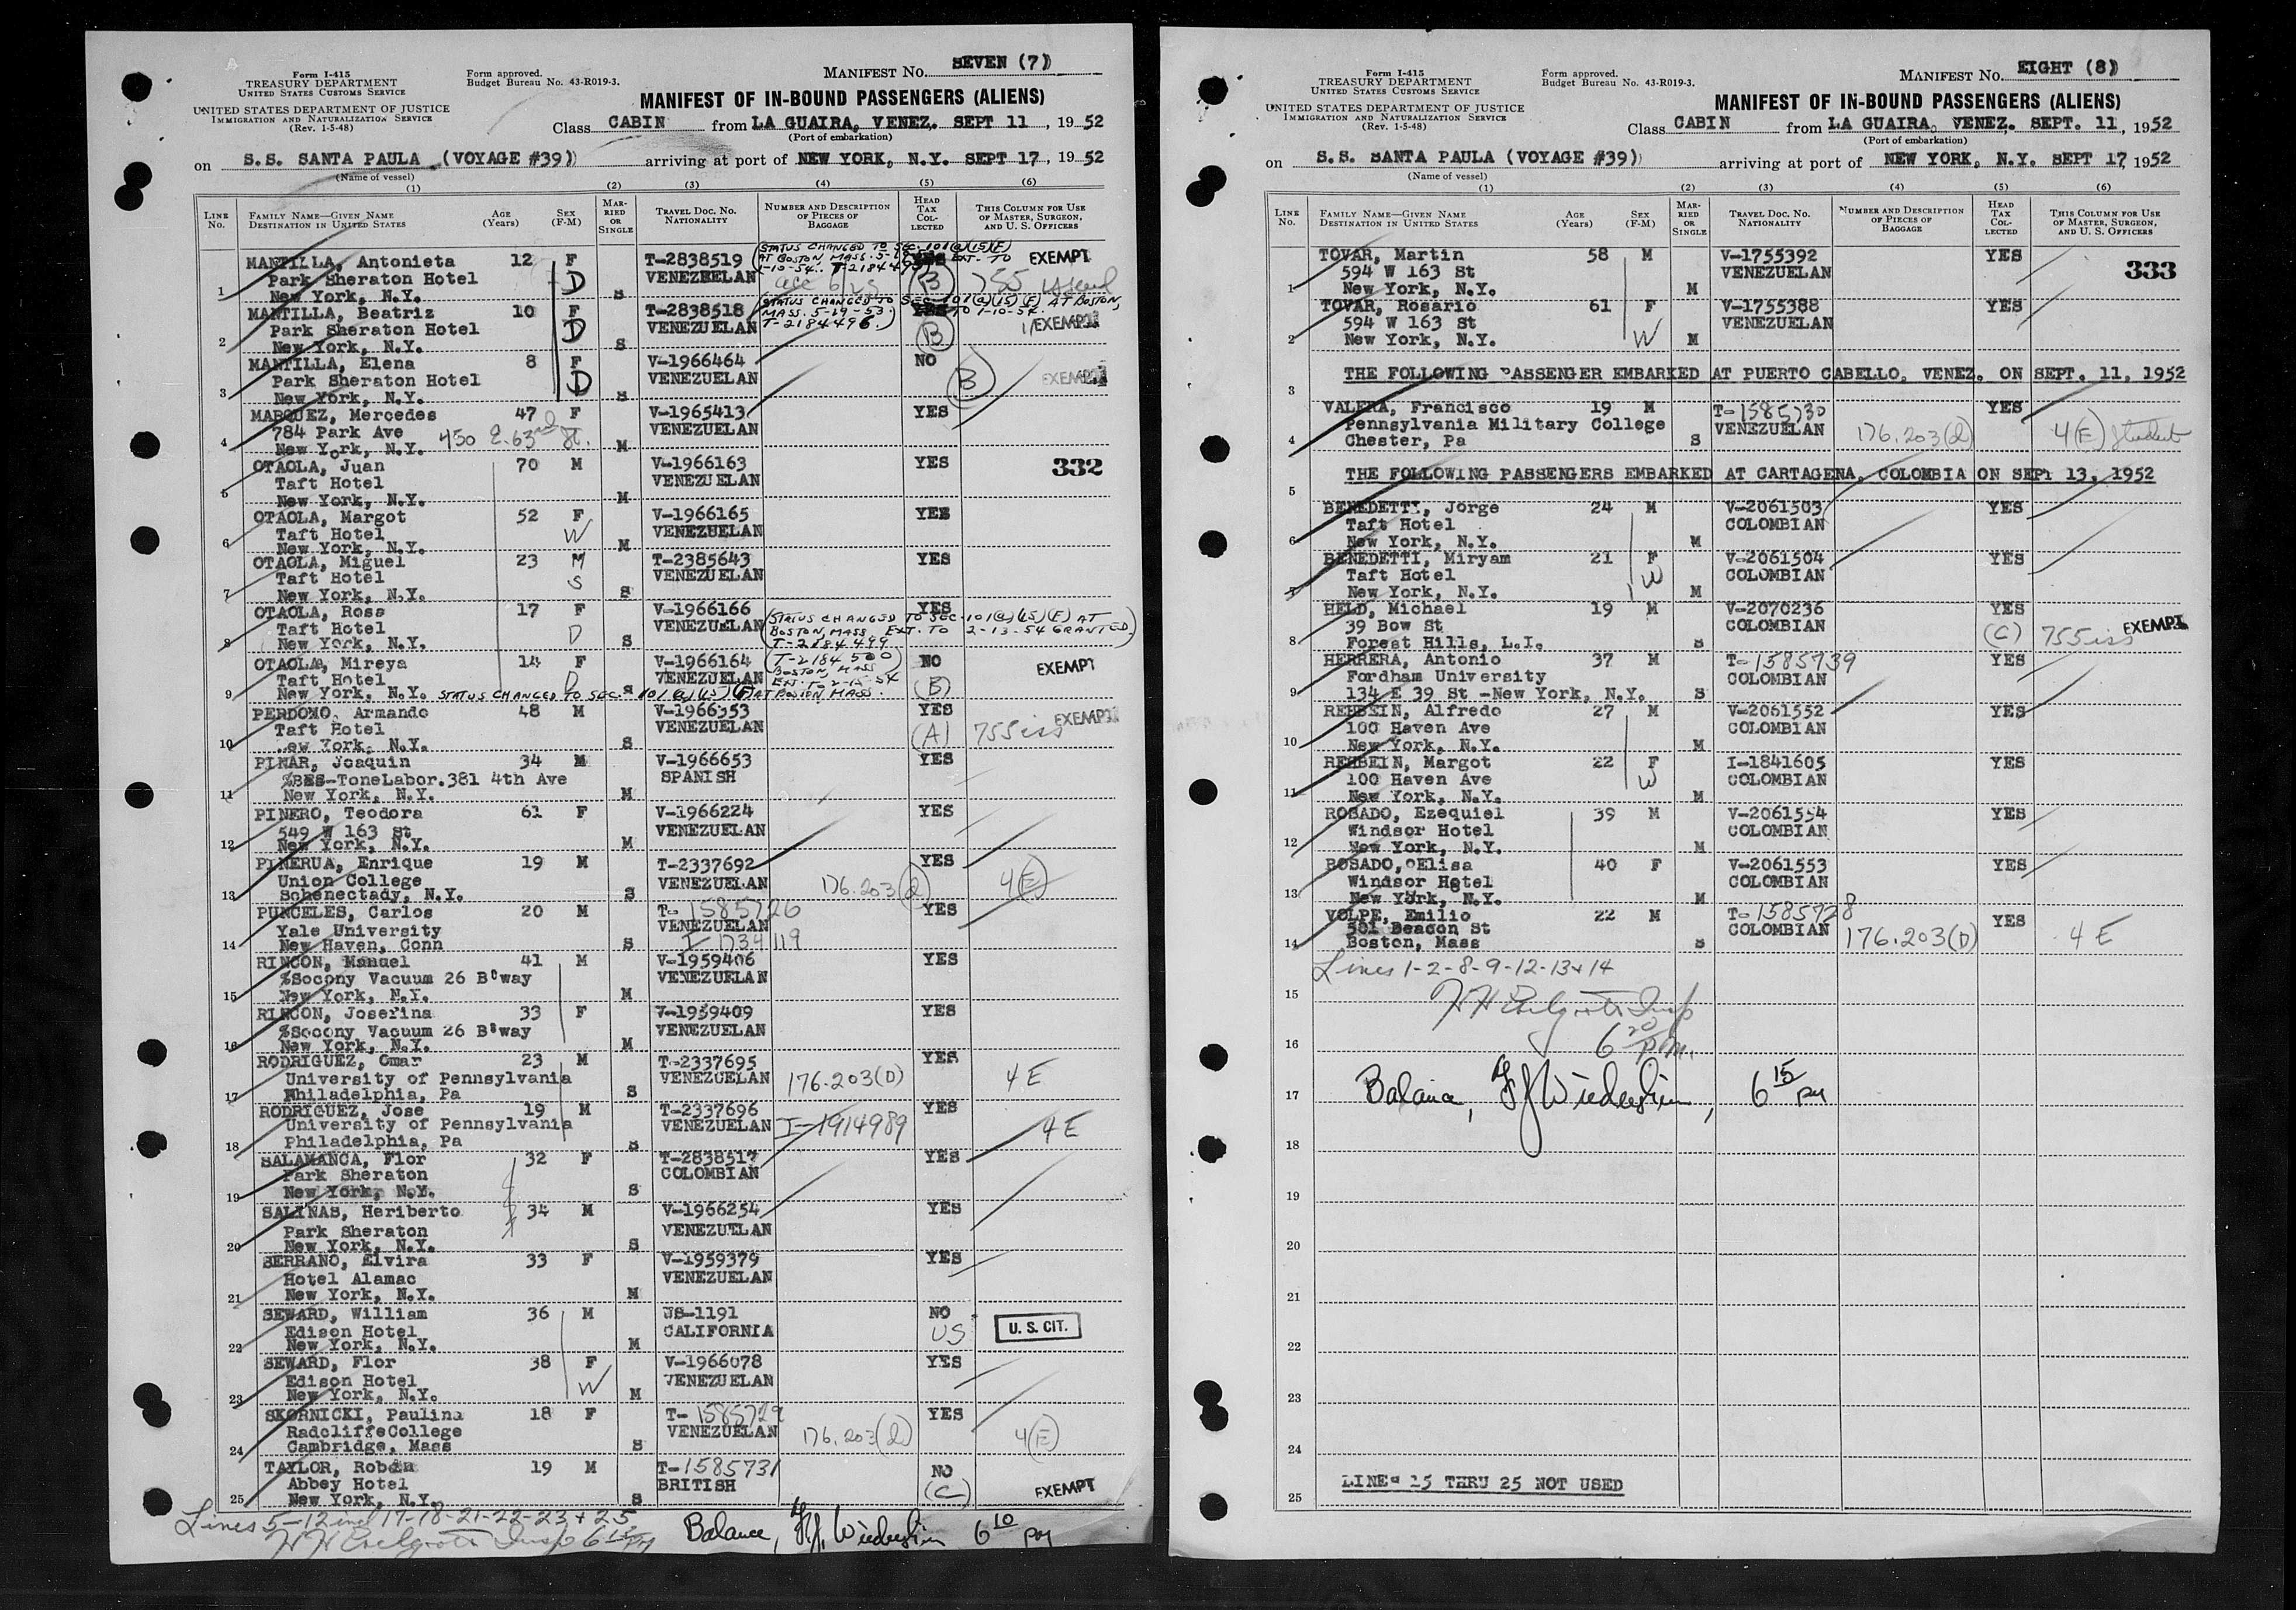 Form I-415
TREASURY DEPARTMENT
UNITED STATES CUSTOMS SERVICE
UNITED STATES DEPARTMENT OF JUSTICE
IMMIGRATION AND NATURALIZATION SERVICE
(Rev. 1-5-48)
Form approved.
Budget Bureau No. 43-R019-3.
MANIFEST NO. SEVEN (7)
MANIFEST OF IN-BOUND PASSENGERS (ALIENS)
Class CABIN from LA GUAIRA, VENEZ. SEPT 11, 1952
(Port of embarkation)
on S.S. SANTA PAULA (VOYAGE #39) arriving at port of NEW YORK, N.Y. SEPT 17, 1952
(Name of vessel)
(1) (2) (3) (4) (5) (6)
LINE No. FAMILY NAME—GIVEN NAME DESTINATION IN UNITED STATES AGE (Years) SEX (F-M) MARRIED OR SINGLE TRAVEL DOC. NO. NATIONALITY NUMBER AND DESCRIPTION OF PIECES OF BAGGAGE HEAD TAX COLLECTED THIS COLUMN FOR USE OF MASTER, SURGEON, AND U. S. OFFICERS
MANTILLA, Antonieta 12 F T-2838519 (STATUS CHANGED TO SEC. 101(a)(15)(F) EXEMPT
Park Sheraton Hotel D VENEZUELAN AT BOSTON, MASS. EXT. TO 1-10-54. T-2184495 (B)
1 New York, N.Y. S
MANTILLA, Beatriz 10 F T-2838518 (STATUS CHANGED TO SEC. 101(a)(15)(F) AT BOSTON,
Park Sheraton Hotel D VENEZUELAN MASS. 5-19-53. TO 1-10-54. T-2184496.) (B) EXEMPT
2 New York, N.Y. S
MANTILLA, Elena 8 F V-1966464 NO
Park Sheraton Hotel D VENEZUELAN (B) EXEMPT
3 New York, N.Y. S
MARQUEZ, Mercedes 47 F V-1965413 YES
784 Park Ave 450 E. 63rd St. VENEZUELAN
4 New York, N.Y. M
OTAOLA, Juan 70 M V-1966163 YES 332
Taft Hotel VENEZUELAN
5 New York, N.Y. M
OTAOLA, Margot 52 F V-1966165 YES
Taft Hotel W VENEZUELAN
6 New York, N.Y. M
OTAOLA, Miguel 23 M T-2385643 YES
Taft Hotel S VENEZUELAN
7 New York, N.Y. S
OTAOLA, Rosa 17 F V-1966166 YES
Taft Hotel D VENEZUELAN (STATUS CHANGED TO SEC. 101(a)(15)(F) AT
8 New York, N.Y. S BOSTON, MASS. EXT. TO 2-13-54 GRANTED.) T-2184499
OTAOLA, Mireya 14 F V-1966164 (T-2184500 NO EXEMPT
Taft Hotel D VENEZUELAN BOSTON, MASS (B)
9 New York, N.Y. STATUS CHANGED TO SEC. 101(a)(15)(F) AT BOSTON MASS. S
PERDOMO, Armando 48 M V-1966353 YES EXEMPT
Taft Hotel VENEZUELAN (A) 755 iss
10 New York, N.Y. S
PINAR, Joaquin 34 M V-1966653 YES
%BES-ToneLabor.381 4th Ave SPANISH
11 New York, N.Y. M
PINERO, Teodora 61 F V-1966224 YES
549 W 163 St VENEZUELAN
12 New York, N.Y. M
PINERUA, Enrique 19 M T-2337692 YES
Union College VENEZUELAN 176.203(d) 4(E)
13 Schenectady, N.Y. S
PUNCELES, Carlos 20 M T-1585726 YES
Yale University VENEZUELAN
14 New Haven, Conn S I-1734119
RINCON, Manuel 41 M V-1959406 YES
%Socony Vacuum 26 B'way VENEZUELAN
15 New York, N.Y. M
RINCON, Josefina 33 F V-1959409 YES
%Socony Vacuum 26 B'way VENEZUELAN
16 New York, N.Y. M
RODRIGUEZ, Omar 23 M T-2337695 YES
University of Pennsylvania VENEZUELAN 176.203(D) 4 E
17 Philadelphia, Pa S
RODRIGUEZ, Jose 19 M T-2337696 YES
University of Pennsylvania VENEZUELAN I-1914989 4 E
18 Philadelphia, Pa S
SALAMANCA, Flor 32 F T-2838517 YES
Park Sheraton COLOMBIAN
19 New York, N.Y. S
SALINAS, Heriberto 34 M V-1966254 YES
Park Sheraton VENEZUELAN
20 New York, N.Y. S
SERRANO, Elvira 33 F V-1959379 YES
Hotel Alamac VENEZUELAN
21 New York, N.Y. M
SEWARD, William 36 M US-1191 NO
Edison Hotel CALIFORNIA US U. S. CIT.
22 New York, N.Y. M
SEWARD, Flor 38 F V-1966078 YES
Edison Hotel W VENEZUELAN
23 New York, N.Y. M
SKORNICKI, Paulina 18 F T-1585729 YES
RadcliffeCollege VENEZUELAN 176.203(d) 4(E)
24 Cambridge, Mass S
TAYLOR, Robin 19 M T-1585731 NO
Abbey Hotel BRITISH (C) EXEMPT
25 New York, N.Y. S
Lines 5-12 incl 17-18-21-22-23+25
Balance, 6 10 pm
Form I-415
TREASURY DEPARTMENT
UNITED STATES CUSTOMS SERVICE
UNITED STATES DEPARTMENT OF JUSTICE
IMMIGRATION AND NATURALIZATION SERVICE
(Rev. 1-5-48)
Form approved.
Budget Bureau No. 43-R019-3.
MANIFEST NO. EIGHT (8)
MANIFEST OF IN-BOUND PASSENGERS (ALIENS)
Class CABIN from LA GUAIRA, VENEZ. SEPT. 11, 1952
(Port of embarkation)
on S.S. SANTA PAULA (VOYAGE #39) arriving at port of NEW YORK, N.Y. SEPT 17, 1952
(Name of vessel)
(1) (2) (3) (4) (5) (6)
LINE No. FAMILY NAME—GIVEN NAME DESTINATION IN UNITED STATES AGE (Years) SEX (F-M) MARRIED OR SINGLE TRAVEL DOC. NO. NATIONALITY NUMBER AND DESCRIPTION OF PIECES OF BAGGAGE HEAD TAX COLLECTED THIS COLUMN FOR USE OF MASTER, SURGEON, AND U. S. OFFICERS
TOVAR, Martin 58 M V-1755392 YES 333
594 W 163 St VENEZUELAN
1 New York, N.Y. M
TOVAR, Rosario 61 F V-1755388 YES
594 W 163 St W VENEZUELAN
2 New York, N.Y. M
3 THE FOLLOWING PASSENGER EMBARKED AT PUERTO CABELLO, VENEZ. ON SEPT. 11, 1952
VALERA, Francisco 19 M T-1585730 YES
Pennsylvania Military College VENEZUELAN 176.203(d) 4(E) Student
4 Chester, Pa S
5 THE FOLLOWING PASSENGERS EMBARKED AT CARTAGENA, COLOMBIA ON SEPT 13, 1952
BENEDETTI, Jorge 24 M V-2061503 YES
Taft Hotel COLOMBIAN
6 New York, N.Y. M
BENEDETTI, Miryam 21 F V-2061504 YES
Taft Hotel W COLOMBIAN
7 New York, N.Y. M
HELD, Michael 19 M V-2070236 YES
39 Bow St COLOMBIAN (C) 755 iss EXEMPT
8 Forest Hills, L.I. S
HERRERA, Antonio 37 M T-1585739 YES
Fordham University COLOMBIAN
9 134 E 39 St -New York, N.Y. S
REHBEIN, Alfredo 27 M V-2061552 YES
100 Haven Ave COLOMBIAN
10 New York, N.Y. M
REHBEIN, Margot 22 F I-1841605 YES
100 Haven Ave W COLOMBIAN
11 New York, N.Y. M
ROSADO, Ezequiel 39 M V-2061554 YES
Windsor Hotel COLOMBIAN
12 New York, N.Y. M
ROSADO, Elisa 40 F V-2061553 YES
Windsor Hotel COLOMBIAN
13 New York, N.Y. M
VOLPE, Emilio 22 M T-1585728 YES
581 Beacon St COLOMBIAN 176.203(D) 4 E
14 Boston, Mass S
Lines 1-2-8-9-12-13+14
15
6 20 p.m.
16
17 Balance, 6 15 pm
18
19
20
21
22
23
24
25 LINES 15 THRU 25 NOT USED